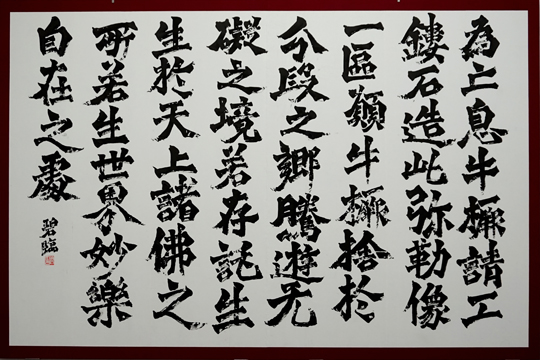 為亡息牛橛請工
鏤石造此弥勒像
一區願牛橛捨於
分段之鄉騰遊无
礙之境若存託生
生於天上諸佛之
所若生世界妙樂
自在之處
碧臨